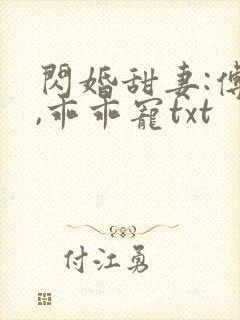 閃婚甜妻:傅
,乖乖寵txt
付江勇